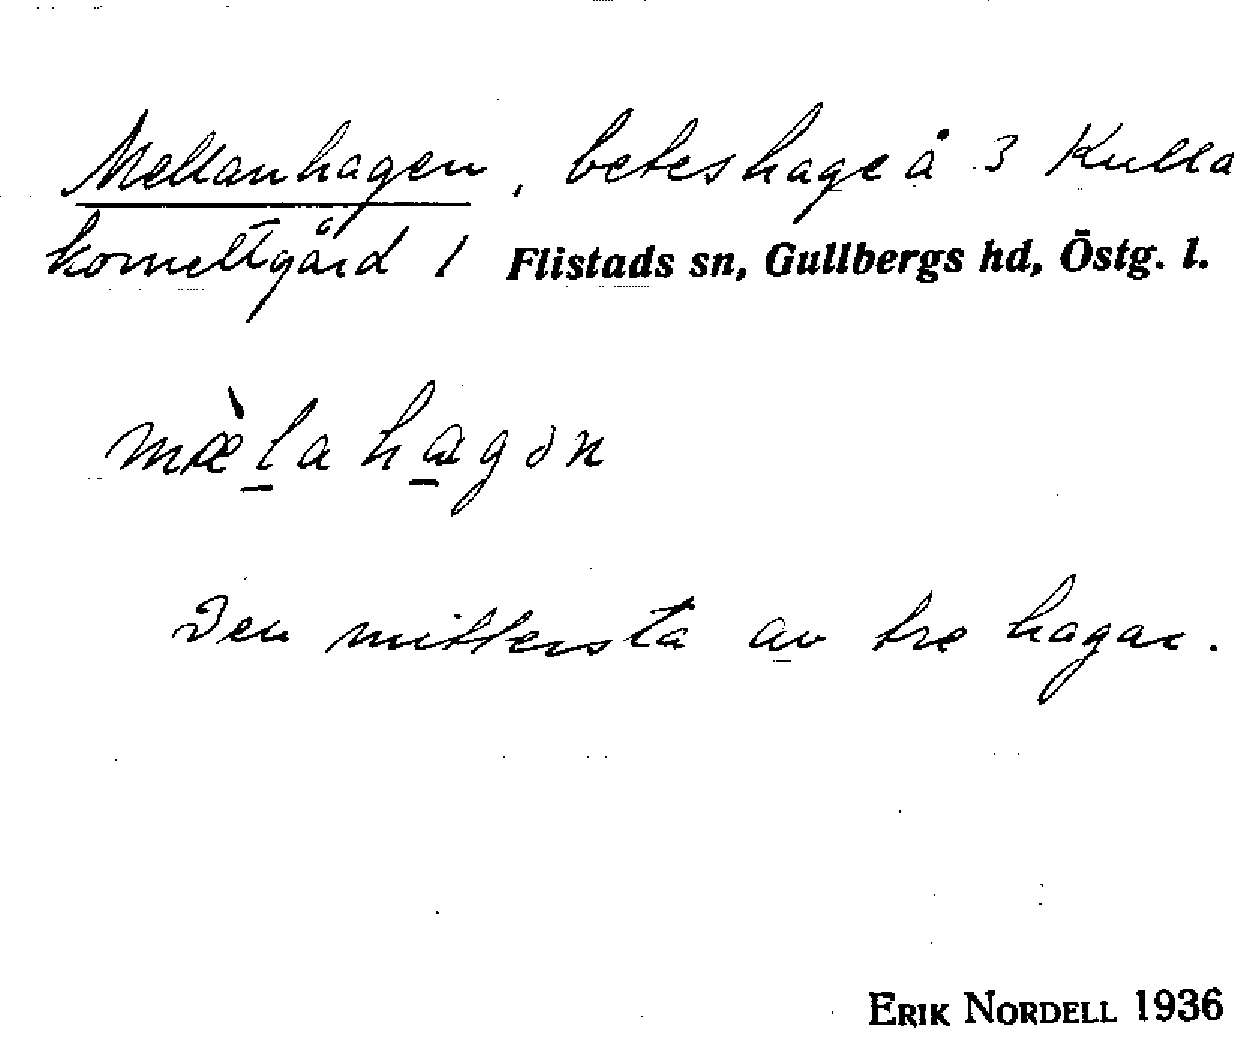 Mellanhagen, beteshage å 3 Kulla
kornettgård 1 Flistads sn, Gullbergs hd, Östg. l.
mæ̀l̲a ha̲gən
Den mittersta av tre hagar.
ERIK NORDELL 1936